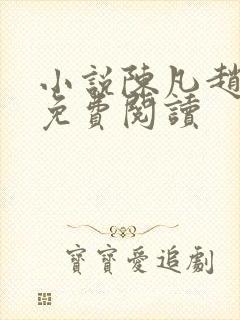 小說陳凡趙
免費閱讀
寶寶愛追劇